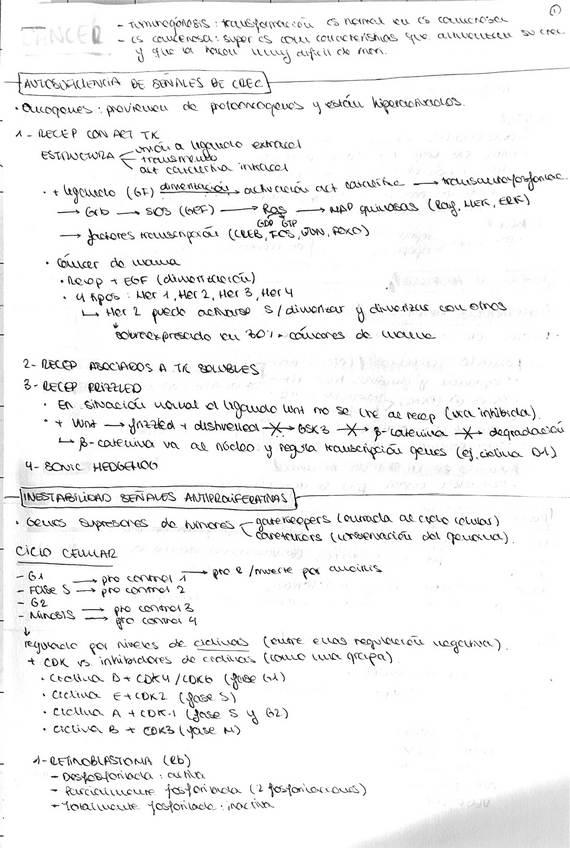 ①
CANCER
- Tumorogénesis: transformación cs normal en cs cancerosa
- cs cancerosa: super cs con características que aumenten su crec
y que la hacen muy difícil de morir.
AUTOSUFICIENCIA DE SEÑALES DE CREC
· Oncogenes: provienen de protooncogenes y están hiperactivados.
1- RECEP CON ACT TK
ESTRUCTURA unión a ligando extracel
transmemb
act catalítica intracel
· + ligando (GF) dimerización → activación act catalítica → transautofosforilac.
→ Grb → SOS (GEF) → Ras → MAP quinasas (Raf, MEK, ERK)
GDP GTP
→ factores transcripción (CREB, FOS, JUN, FOXO)
· cáncer de mama
· Recep + EGF (dimerización)
· 4 tipos: Her 1, Her 2, Her 3, Her 4
↳ Her 2 puede activarse s/ dimerizar y dimerizar con otros
sobreexpresado en 30% cánceres de mama
2- RECEP ASOCIADOS A TK SOLUBLES
3- RECEP FRIZZLED
· En situación normal el ligando Wnt no se une al recep (vía inhibida).
· + Wnt → frizzled + dishevelled → GSK3 → β-catenina → degradación
↳ β-catenina va al núcleo y regula transcripción genes (ej. ciclina D1)
4- SONIC HEDGEHOG
INESTABILIDAD SEÑALES ANTIPROLIFERATIVAS
· Genes supresores de tumores gatekeepers (entrada al ciclo celular)
caretakers (conservación del genoma).
CICLO CELULAR
- G1 → pto control 1 → pto R /muerte por anoikis
- FASE S → pto control 2
- G2
- MITOSIS → pto control 3
→ pto control 4
↓
regulado por niveles de ciclinas (entre ellas regulación negativa).
+ CDK vs inhibidores de ciclinas (como una grapa)
· Ciclina D + CDK4/CDK6 (fase G1)
· Ciclina E + CDK2 (fase S)
· Ciclina A + CDK1 (fase S y G2)
· Ciclina B + CDK3 (fase M)
1- RETINOBLASTOMA (Rb)
- Desfosforilada: activa
- Parcialmente fosforilada (2 fosforilaciones)
- Totalmente fosforilada: inactiva